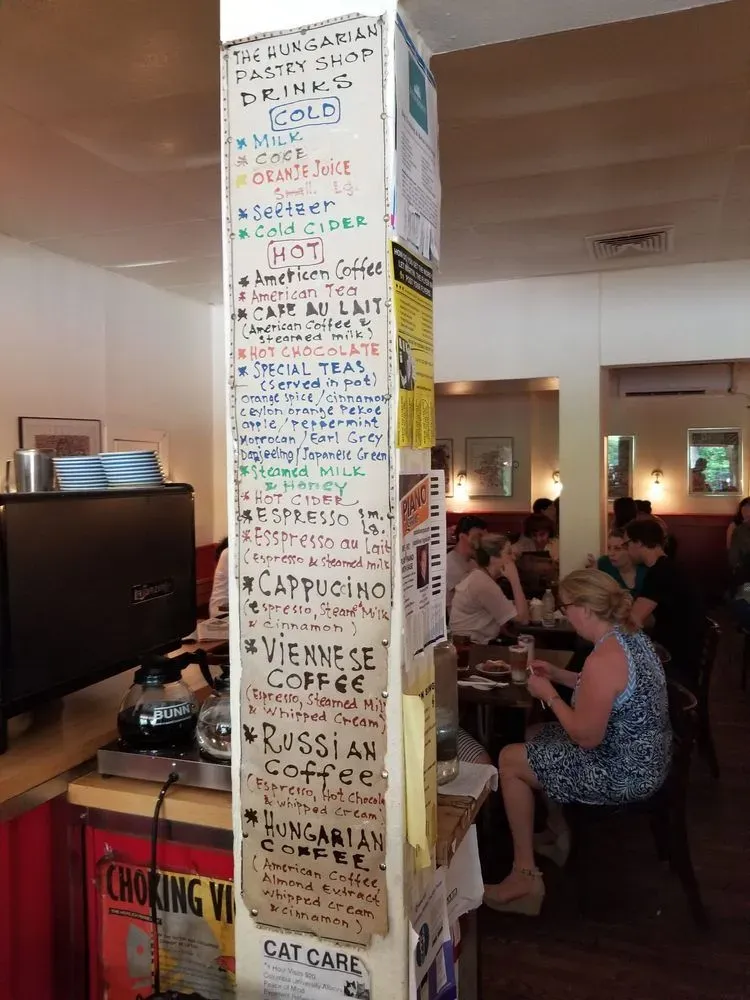 THE HUNGARIAN
PASTRY SHOP
DRINKS
COLD
* MILK
* COKE
* ORANJE JUICE
Small. Lg.
* Seltzer
* Cold CIDER
HOT
* American Coffee
* American Tea
* CAFE AU LAIT
(American Coffee &
steamed milk)
* HOT CHOCOLATE
* SPECIAL TEAS
(served in pot)
orange spice/cinnamon
ceylon orange Pekoe
apple/peppermint
Morrocan/Earl Grey
Darjeeling/Japanese Green
* Steamed MILK
& Honey
* HOT CIDER
* ESPRESSO Sm.
Lg.
* ESSpresso au Lait
(espresso & steamed milk
* CAPPUCINO
(espresso, Steam Milk
& cinnamon)
* VIENNESE
COFFEE
(Espresso, Steamed Mil
& Whipped Cream)
* RUSSIAN
Coffee
(Espresso, Hot Chocola
& whipped cream)
* HUNGARIAN
COFFEE
(American Coffee,
Almond Extract
whipped cream
& cinnamon)
CAT CARE
Columbia University
Peace of Mind
PIANO
BUNN
CHOKING VI